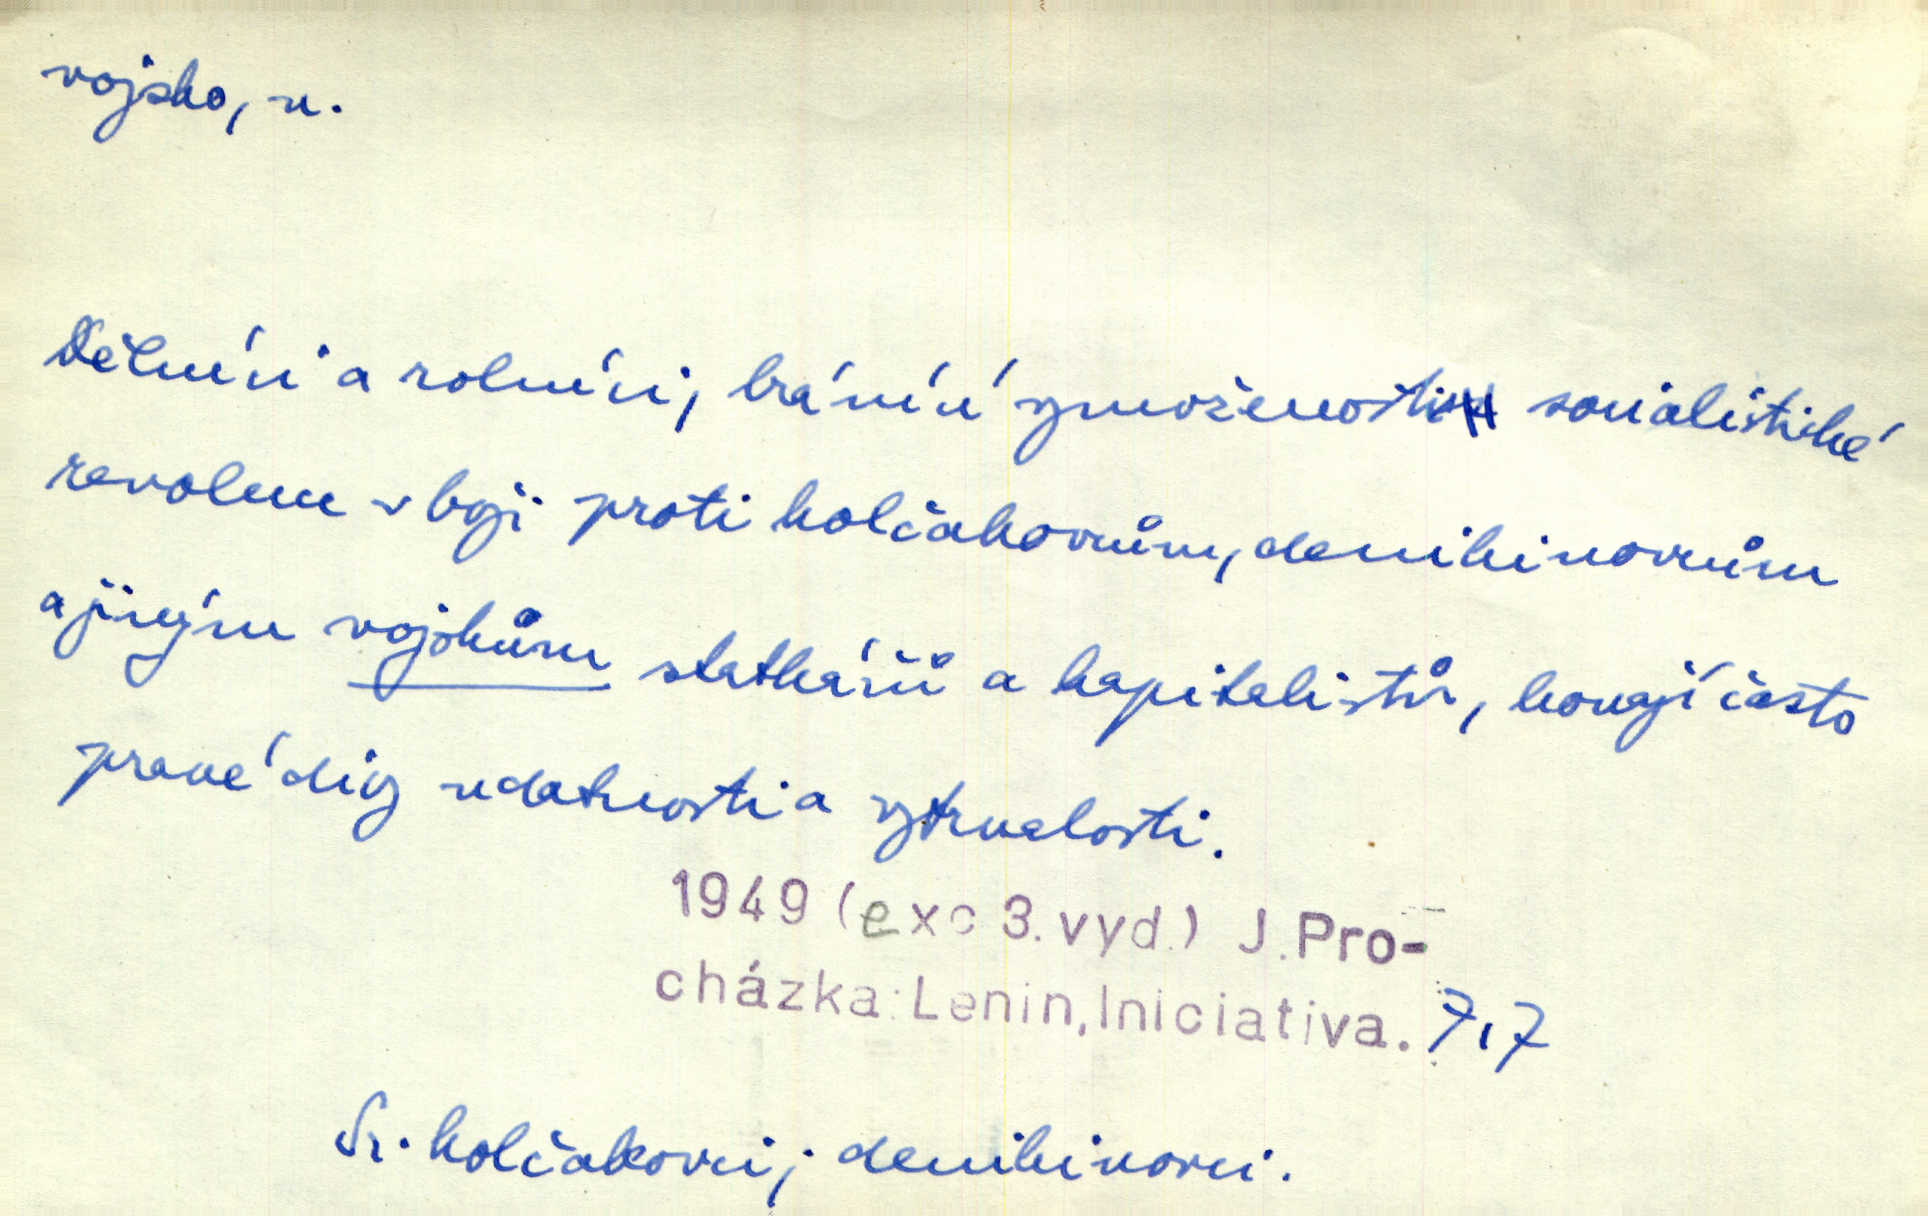 vojsko, n.
Dělníci a rolníci, bránící vymoženosti socialistické
revoluce v boji proti kolčakovcům, denikinovcům
a jiným vojskům statkářů a kapitalistů, konají často
pravé divy udatnosti a vytrvalosti.
1949 (exc 3. vyd.) J. Pro-
cházka: Lenin, Iniciativa. 7,7
Sr. kolčakovci; denikinovci.